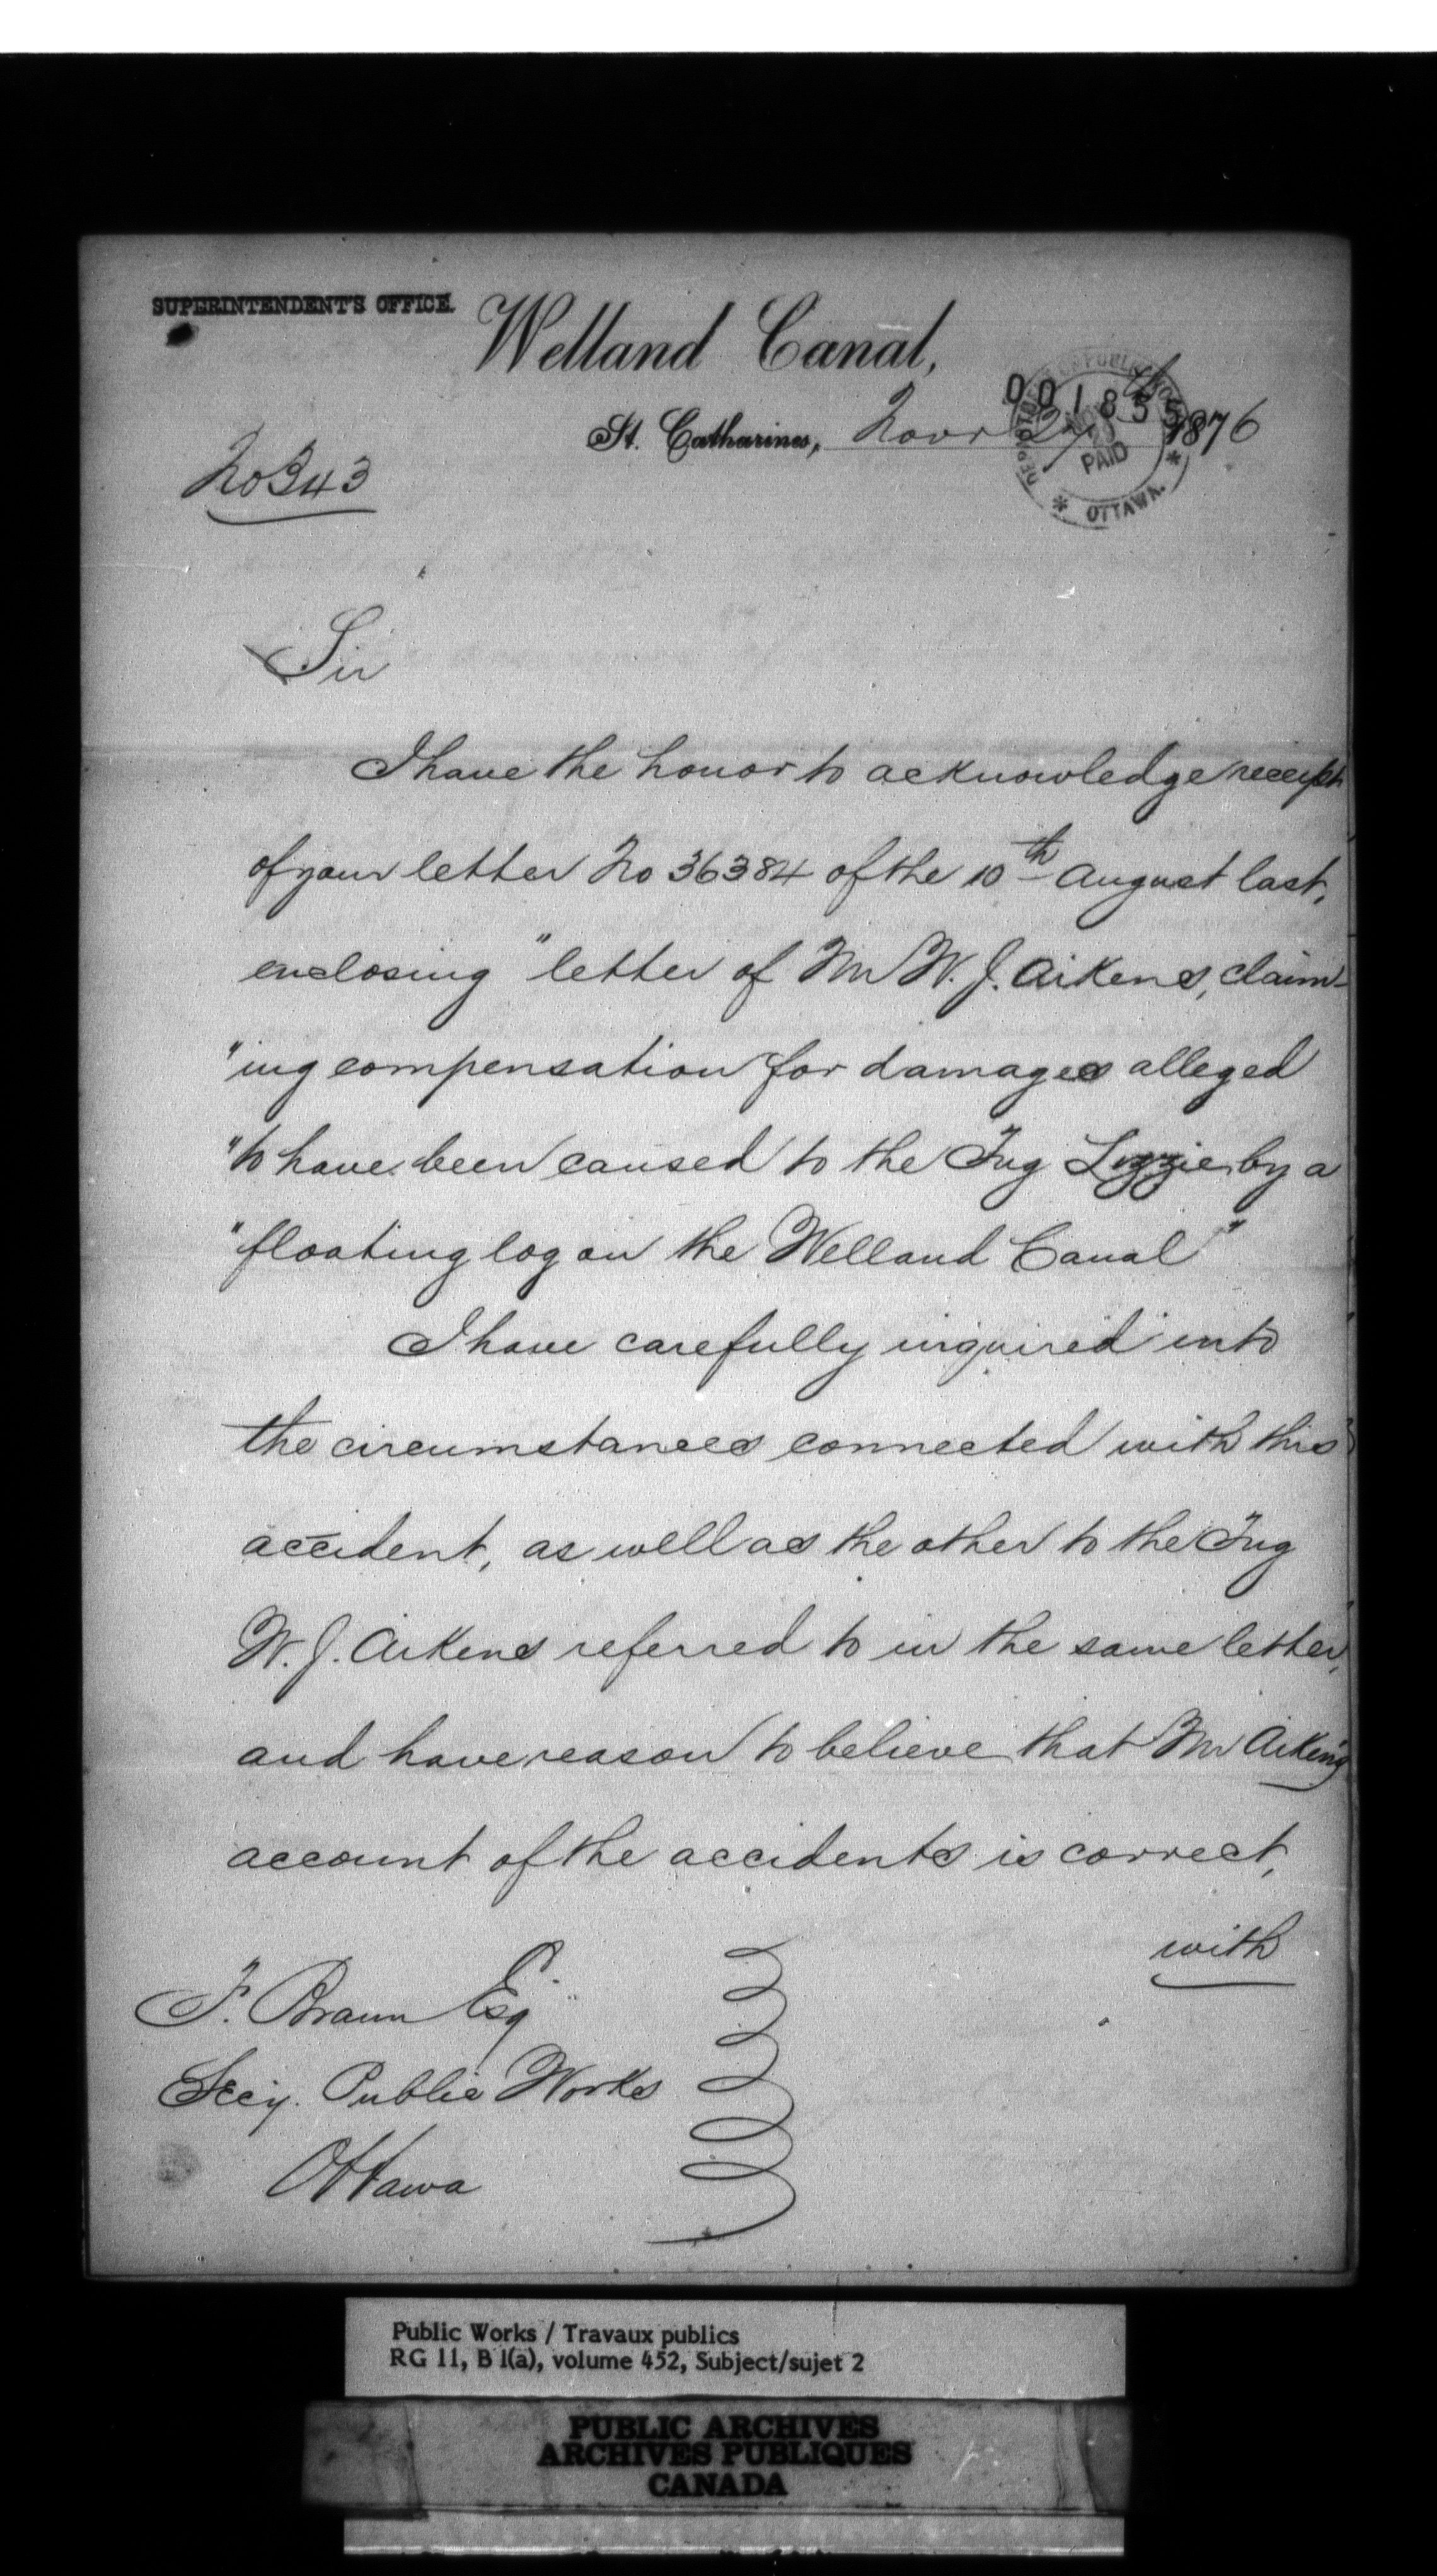 SUPERINTENDENT'S OFFICE.
Welland Canal,
001855
St. Catharines, Novr 27th 1876
DEPARTMENT OF PUBLIC WORKS
PAID
* OTTAWA. *
No 343
Sir
I have the honor to acknowledge receipt
of your letter No 36384 of the 10th August last,
enclosing "letter of Mr W. J. Aikens, claim-
"ing compensation for damages alleged
"to have been caused to the Tug Lizzie by a
"floating log on the Welland Canal"
I have carefully inquired into
the circumstances connected with this
accident, as well as the other to the Tug
W. J. Aikens referred to in the same letter,
and have reason to believe that Mr Aikens
account of the accidents is correct,
with
F. Braun Esq
Secy. Public Works
Ottawa
Public Works / Travaux publics
RG 11, B 1(a), volume 452, Subject/sujet 2
PUBLIC ARCHIVES
ARCHIVES PUBLIQUES
CANADA